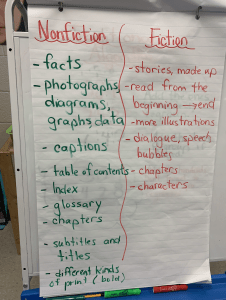 Nonfiction
- facts
- photographs,
diagrams,
graphs, data
- captions
- table of contents
- Index
- glossary
- chapters
- subtitles and
titles
- different kinds
of print (bold)
Fiction
- stories, made up
- read from the
beginning → end
- more illustrations
- dialogue, speech
bubbles
- chapters
- characters